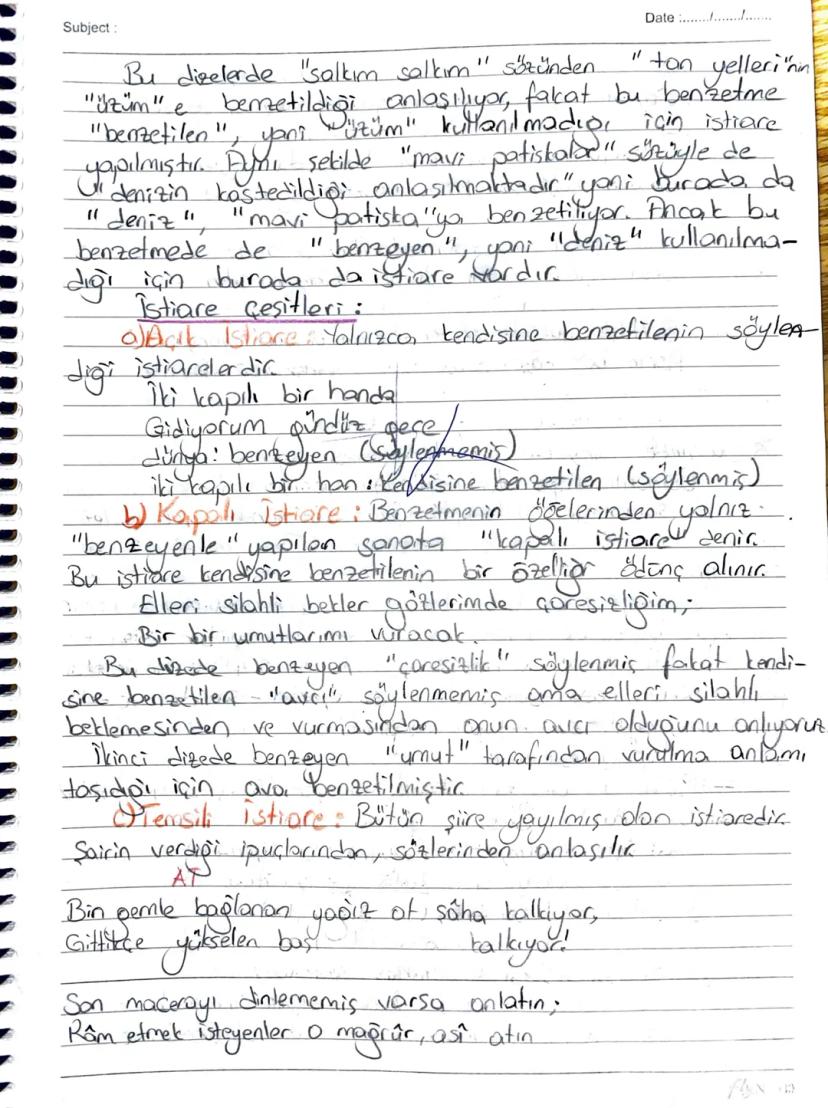 Subject :
Date :......./......./.......
Bu dizelerde "salkım salkım" sözünden "tan yelleri"nin
"üzüm"e benzetildiği anlaşılıyor, fakat bu benzetme
"benzetilen", yani "üzüm" kullanılmadığı için istiare
yapılmıştır. Aynı şekilde "mavi patiskalar" sözüyle de
"denizin kastedildiği anlaşılmaktadır" yani burada da
"deniz", "mavi patiska"ya benzetiliyor. Ancak bu
benzetmede de "benzeyen", yani "deniz" kullanılma-
dığı için burada da istiare vardır.
İstiare çeşitleri :
a) Açık İstiare : Yalnızca, kendisine benzetilenin söylen-
diği istiarelerdir.
İki kapılı bir handa
Gidiyorum gündüz gece
dünya : benzeyen (söylenmemiş)
iki kapılı bir han : kendisine benzetilen (söylenmiş)
b) Kapalı İstiare : Benzetmenin öğelerinden yalnız
"benzeyenle" yapılan sanata "kapalı istiare" denir.
Bu istiare kendisine benzetilenin bir özelliği ödünç alınır.
Elleri silahlı bekler gözlerimde çaresizliğim;
Bir bir umutlarımı vuracak.
Bu dizede benzeyen "çaresizlik" söylenmiş fakat kendi-
sine benzetilen "avcı" söylenmemiş ama elleri silahlı
beklemesinden ve vurmasından onun avcı olduğunu anlıyoruz
İkinci dizede benzeyen "umut" tarafından vurulma anlamı
taşıdığı için ava benzetilmiştir.
c) Temsili İstiare : Bütün şiire yayılmış olan istiaredir.
Şairin verdiği ipuçlarından, sözlerinden anlaşılır.
AT
Bin gemle bağlanan yağız at şâha kalkıyor,
Gittikçe yükselen baş kalkıyor!
Son macerayı dinlememiş varsa anlatın;
Râm etmek isteyenler o mağrûr, asî atın